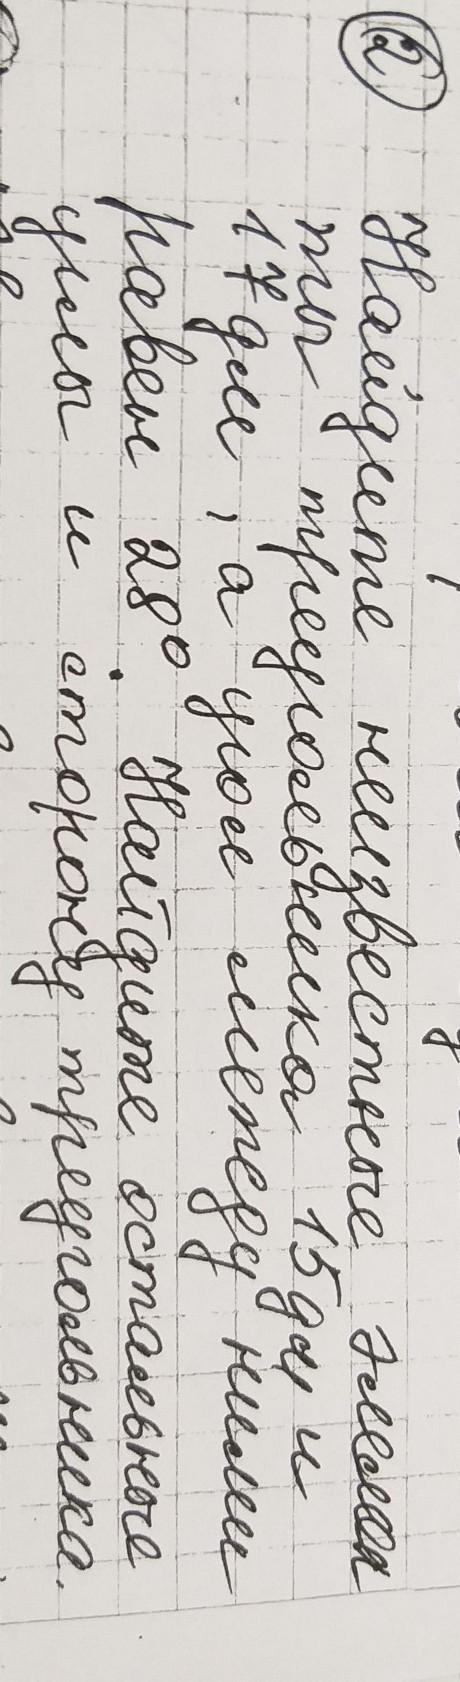 2
Найдите неизвестные элемен
ты треугольника 15 дм и
17 дм, а угол между ними
равен 28°. Найдите остальные
углы и сторону треугольника.